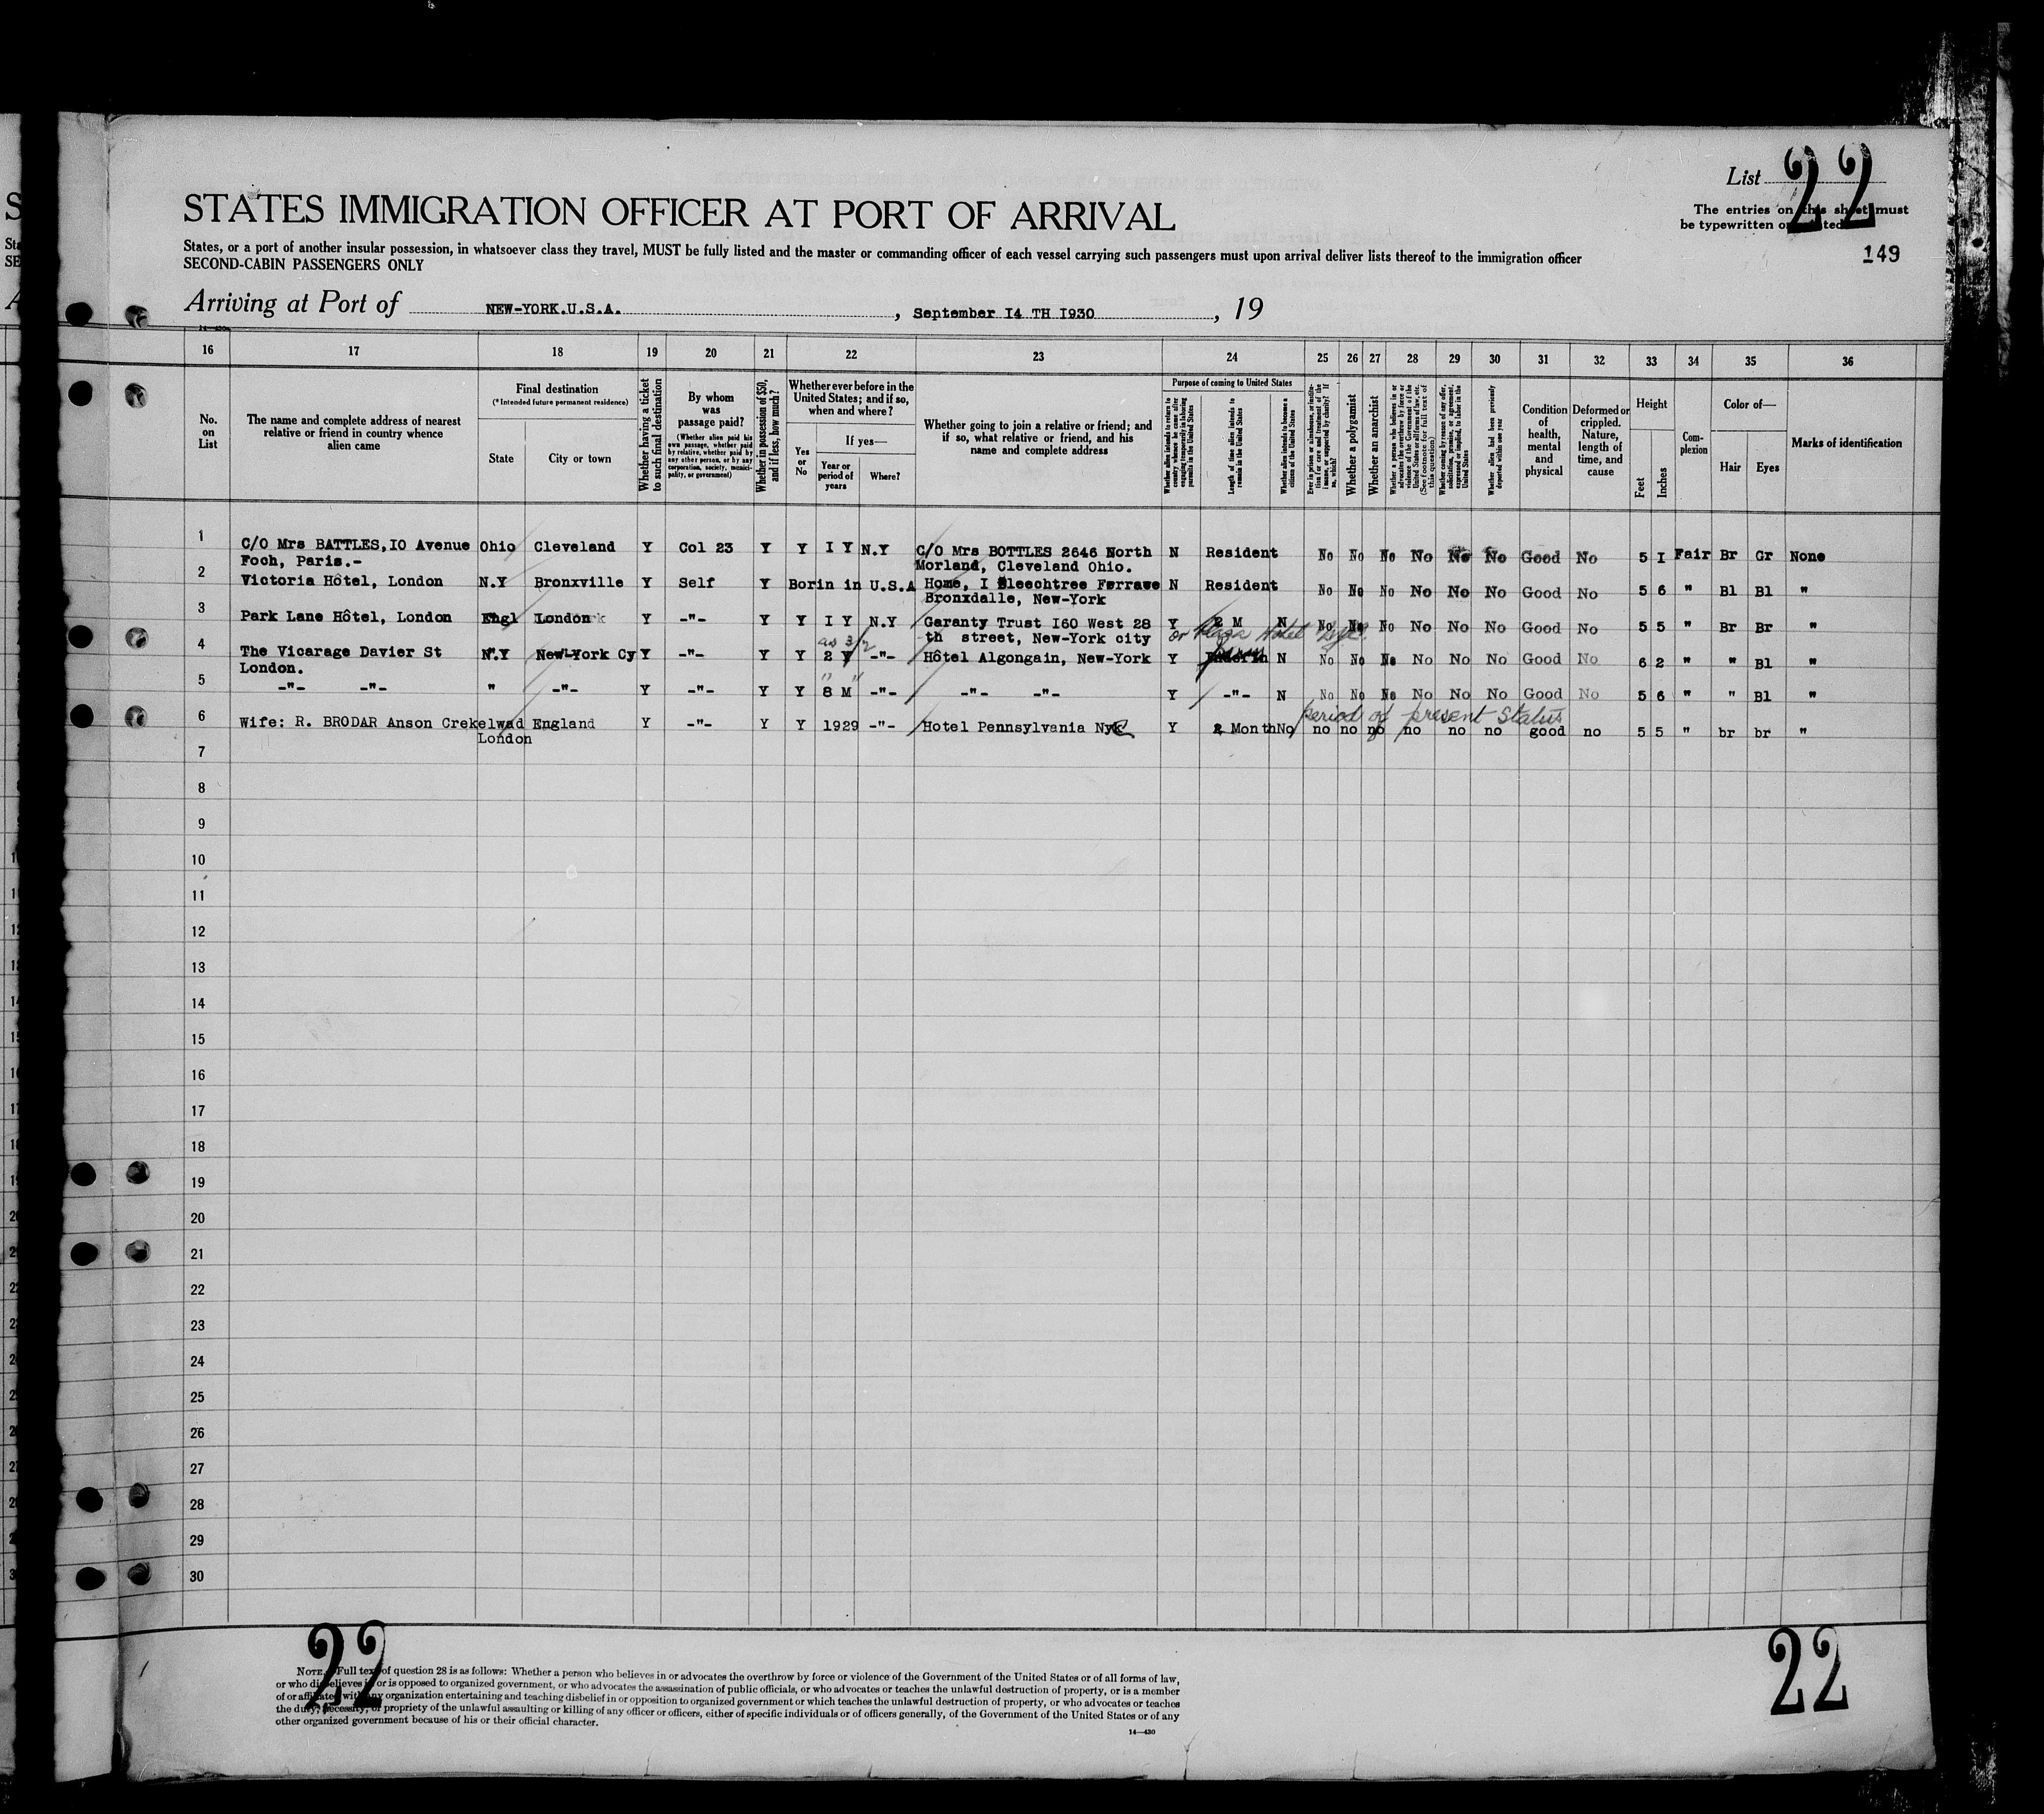 List 22
STATES IMMIGRATION OFFICER AT PORT OF ARRIVAL
The entries on this sheet must
be typewritten or printed
States, or a port of another insular possession, in whatsoever class they travel, MUST be fully listed and the master or commanding officer of each vessel carrying such passengers must upon arrival deliver lists thereof to the immigration officer
SECOND-CABIN PASSENGERS ONLY
149
Arriving at Port of NEW-YORK.U.S.A. , September I4 TH I930 , 19
16 17 18 19 20 21 22 23 24 25 26 27 28 29 30 31 32 33 34 35 36
No. on List
The name and complete address of nearest relative or friend in country whence alien came
Final destination
(*Intended future permanent residence)
State
City or town
Whether having a ticket to such final destination
By whom was passage paid?
(Whether alien paid his own passage, whether paid by relative, whether paid by any other person, or by any corporation, society, municipality, or government)
Whether in possession of $50, and if less, how much?
Whether ever before in the United States; and if so, when and where?
Yes or No
If yes—
Year or period of years
Where?
Whether going to join a relative or friend; and if so, what relative or friend, and his name and complete address
Purpose of coming to United States
Whether alien intends to return to country whence he came after engaging temporarily in laboring pursuits in the United States
Length of time alien intends to remain in the United States
Whether alien intends to become a citizen of the United States
Ever in prison or almshouse, or institution for care and treatment of the insane, or supported by charity? If so, which?
Whether a polygamist
Whether an anarchist
Whether a person who believes in or advocates the overthrow by force or violence of the Government of the United States or all forms of law, etc. (See footnote for full text of this question)
Whether coming by reason of any offer, solicitation, promise, or agreement, expressed or implied, to labor in the United States
Whether alien had been previously deported within one year
Condition of health, mental and physical
Deformed or crippled. Nature, length of time, and cause
Height
Feet
Inches
Complexion
Color of—
Hair
Eyes
Marks of identification
1 C/O Mrs BATTLES,IO Avenue Ohio Cleveland Y Col 23 Y Y I Y N.Y C/O Mrs BOTTLES 2646 North N Resident No No No No No No Good No 5 I Fair Br Gr None
Foch, Paris.- Morland, Cleveland Ohio.
2 Victoria Hôtel, London N.Y Bronxville Y Self Y Borin in U.S.A Home, I Bleechtree Ferrawe N Resident No No No No No No Good No 5 6 " Bl Bl "
Bronxdalle, New-York
3 Park Lane Hôtel, London Engl London Y -"- Y Y I Y N.Y Garanty Trust I60 West 28 Y 2 M N No No No No No No Good No 5 5 " Br Br "
th street, New-York city or Plaza Hotel NYC.
4 The Vicarage Davier St N.Y New-York Cy Y -"- Y Y 2 Y -"- Hôtel Algongain, New-York Y N No No No No No No Good No 6 2 " " Bl "
London.
5 -"- -"- " -"- Y -"- Y Y 8 M -"- -"- -"- Y -"- N No No No No No No Good No 5 6 " " Bl "
period of present status
6 Wife: R. BRODAR Anson Crekelwad England Y -"- Y Y 1929 -"- Hotel Pennsylvania Nyc Y 2 Month No no no no no no no good no 5 5 " br br "
London
7
8
9
10
11
12
13
14
15
16
17
18
19
20
21
22
23
24
25
26
27
28
29
30
22
22
NOTE.—Full text of question 28 is as follows: Whether a person who believes in or advocates the overthrow by force or violence of the Government of the United States or of all forms of law,
or who disbelieves in or is opposed to organized government, or who advocates the assassination of public officials, or who advocates or teaches the unlawful destruction of property, or is a member
of or affiliated with any organization entertaining and teaching disbelief in or opposition to organized government or which teaches the unlawful destruction of property, or who advocates or teaches
the duty, necessity, or propriety of the unlawful assaulting or killing of any officer or officers, either of specific individuals or of officers generally, of the Government of the United States or of any
other organized government because of his or their official character.
14—430